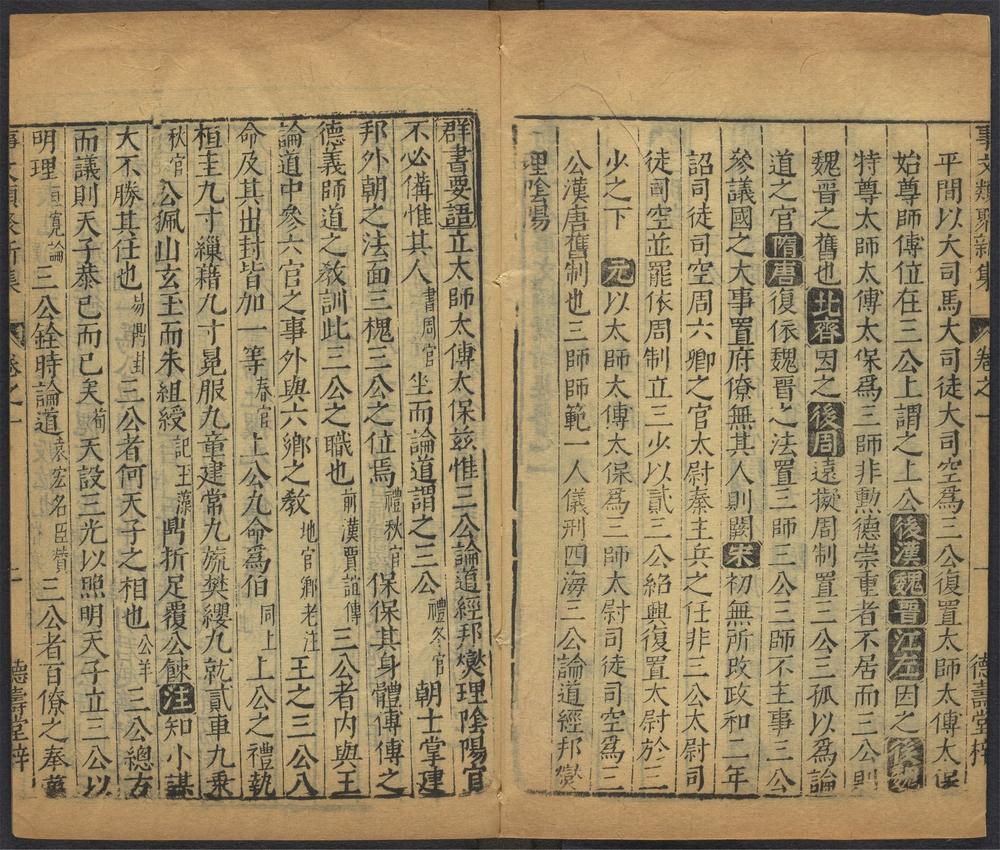 事文類聚新集 卷之一 一 德壽堂梓
平間以大司馬大司徒大司空爲三公復置太師太傅太保
始尊師傅位在三公上謂之上公後漢魏晉江左因之後魏
特尊太師太傅太保爲三師非勲德崇重者不居而三公則
魏晉之舊也北齊因之後周遠擬周制置三公三孤以爲論
道之官隋唐復依魏晉之法置三師三公三師不主事三公
參議國之大事置府僚無其人則闕宋初無所改政和二年
詔司徒司空周六卿之官太尉秦主兵之任非三公太尉司
徒司空並罷依周制立三少以貳三公紹興復置太尉於三
少之下 元以太師太傅太保爲三師太尉司徒司空爲三
公漢唐舊制也三師師範一人儀刑四海三公論道經邦燮
理陰陽
群書要語立太師太傅太保茲惟三公論道經邦燮理陰陽官
不必備惟其人書周官坐而論道謂之三公禮冬官朝士掌建
邦外朝之法面三槐三公之位焉禮秋官保保其身體傅傅之
德義師道之教訓此三公之職也前漢賈誼傳三公者内與王
論道中參六官之事外與六鄉之教地官鄉老注王之三公八
命及其出封皆加一等春官上公九命爲伯同上上公之禮執
桓圭九寸繅藉九寸冕服九章建常九斿樊纓九就貳車九乗
秋官公珮山玄玉而朱組綬記玉藻鼎折足覆公餗注知小謀
大不勝其任也易鼎卦三公者何天子之相也公羊三公總方
而議則天子恭已而已矣荀天設三光以照明天子立三公以
明理桓寬論三公銓時論道袁宏名臣賛三公者百僚之奉萬
事文類聚新集 卷之一 德壽堂梓